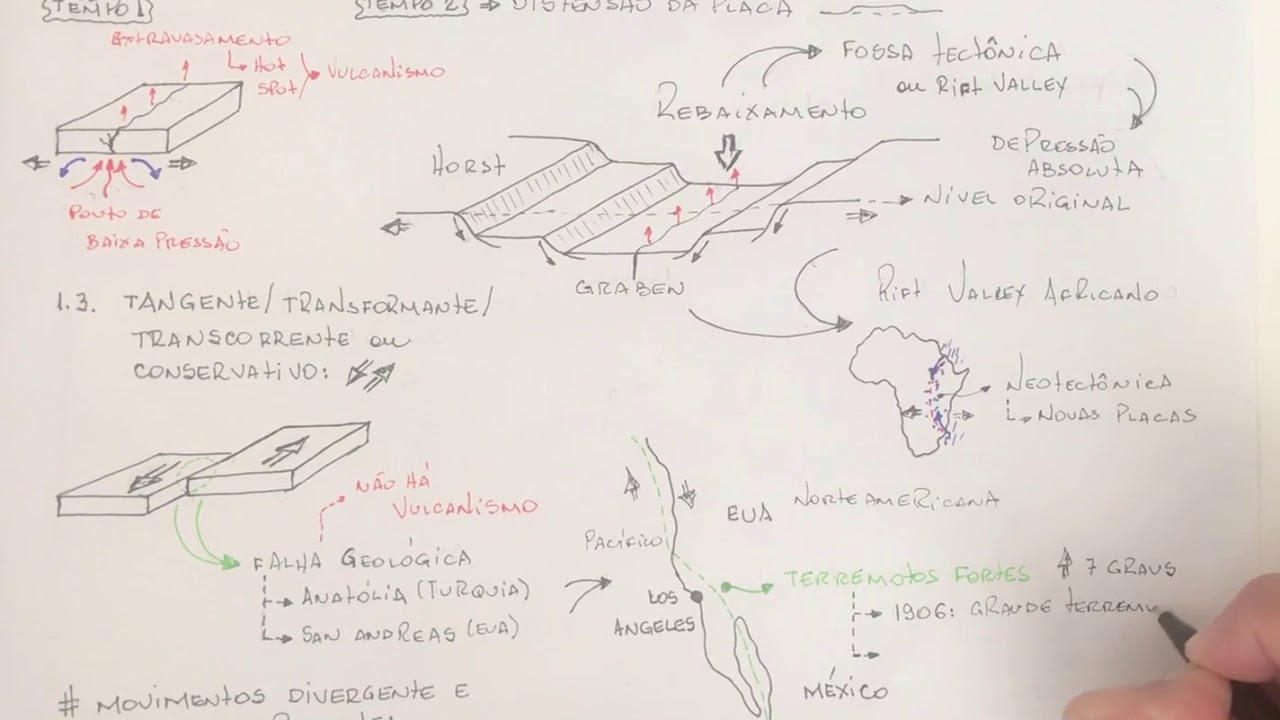 TEMPO 1
TEMPO 2 ⇒ DISTENSÃO DA PLACA
EXTRAVASAMENTO
HOT
SPOT
VULCANISMO
PONTO DE
BAIXA PRESSÃO
HORST
REBAIXAMENTO
FOSSA TECTÔNICA
OU RIFT VALLEY
DEPRESSÃO
ABSOLUTA
NÍVEL ORIGINAL
GRABEN
RIFT VALLEY AFRICANO
NEOTECTÔNICA
NOVAS PLACAS
1.3. TANGENTE/TRANSFORMANTE/
TRANSCORRENTE OU
CONSERVATIVO:
NÃO HÁ
VULCANISMO
FALHA GEOLÓGICA
ANATÓLIA (TURQUIA)
SAN ANDREAS (EUA)
PACÍFICO
EUA NORTEAMERICANA
LOS
ANGELES
TERREMOTOS FORTES ⇑ 7 GRAUS
1906: GRANDE TERREM
MÉXICO
# MOVIMENTOS DIVERGENTE E